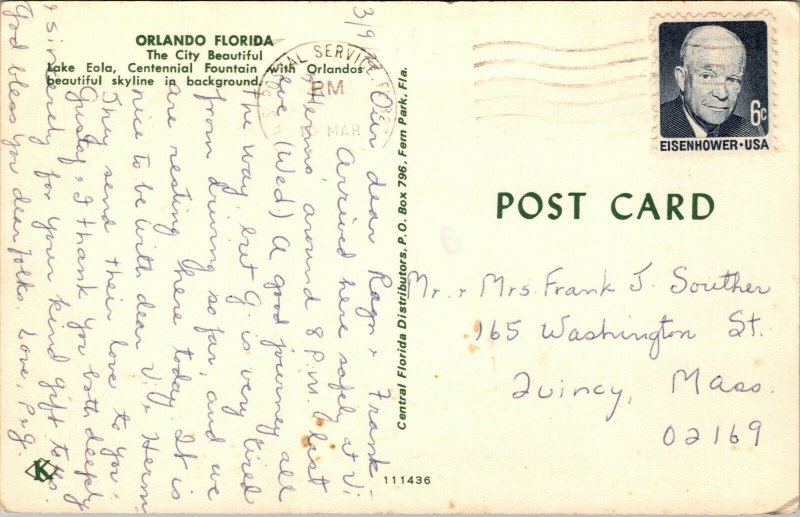 ORLANDO FLORIDA
The City Beautiful
Lake Eola, Centennial Fountain with Orlandos
beautiful skyline in background.
3/9
Our dear Ragn & Frank-
Arrived here safely at Vi
& Herms around 8 P.M. last
eve (Wed) A good journey all
the way but G. is very tired
from driving so far, and we
are resting here today. It is
nice to be with dear Vi & Herm.
They send their love to you.
Gustaf & I thank you both deeply
& sincerely for your kind gift to us.
God bless you dear folks. Love, P & G.
U.S. POSTAL SERVICE
PM
10 MAR
EISENHOWER·USA
6c
POST CARD
Mr. & Mrs. Frank J. Souther
165 Washington St.
Quincy, Mass.
02169
Central Florida Distributors, P.O. Box 796, Fern Park, Fla.
K
111436